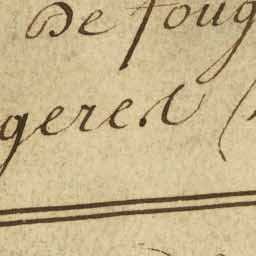 De foug
geres (